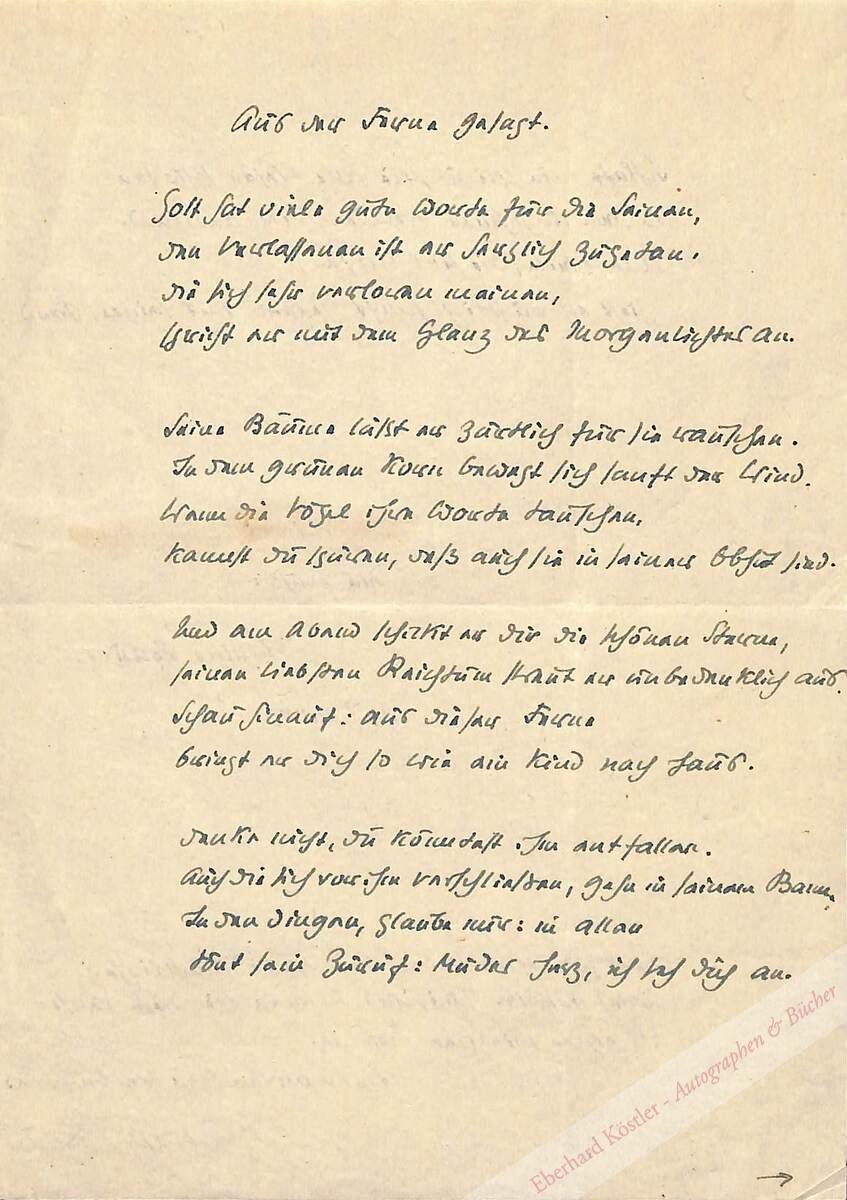 Aus der Ferne gesagt.
Gott hat viele gute Worte für die Seinen,
den Verlassenen ist er herzlich zugetan.
die sich sehr verloren meinen,
spricht er mit dem Glanz des Morgenlichtes an.
Seine Bäume läßt er zärtlich für sie rauschen.
In dem grünen Korn bewegt sich sanft der Wind.
Wenn die Vögel ihre Worte tauschen,
kannst du spüren, daß auch sie in seiner Obhut sind.
Und am Abend schickt er dir die schönen Sterne,
seinen liebsten Reichtum streut er unbedenklich aus.
Schau hinauf: aus dieser Ferne
bringt er dich so wie ein Kind nach Haus.
denke nicht, du könntest ihm entfallen.
Auch die sich vor ihm verschließen, gehn in seinem Bann.
In den Dingen, glaube mir: in allen
tönt sein Zuruf: Müdes Herz, ich seh dich an.
→
Eberhard Köstler - Autographen & Bücher